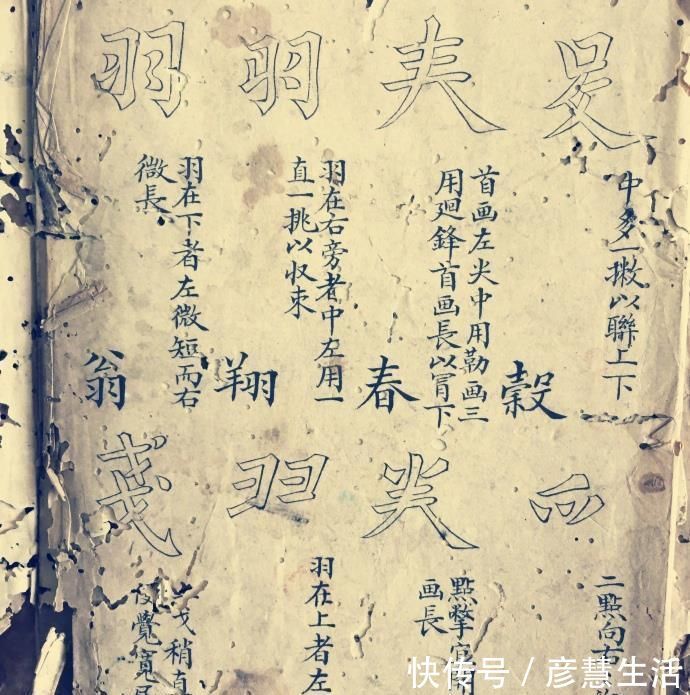 𡗗
羽
羽
中多一撇以聯上下
首画左尖中用勒画三
用廻鋒首画長以冐下
羽在右旁者中左用一
直一挑以収束
羽在下者左微短而右
微長
穀
春
翔
翁
羽
二點向右
點撇宜開
画長
羽在上者左
戈稍直
覺寬
快传号 / 彦慧生活